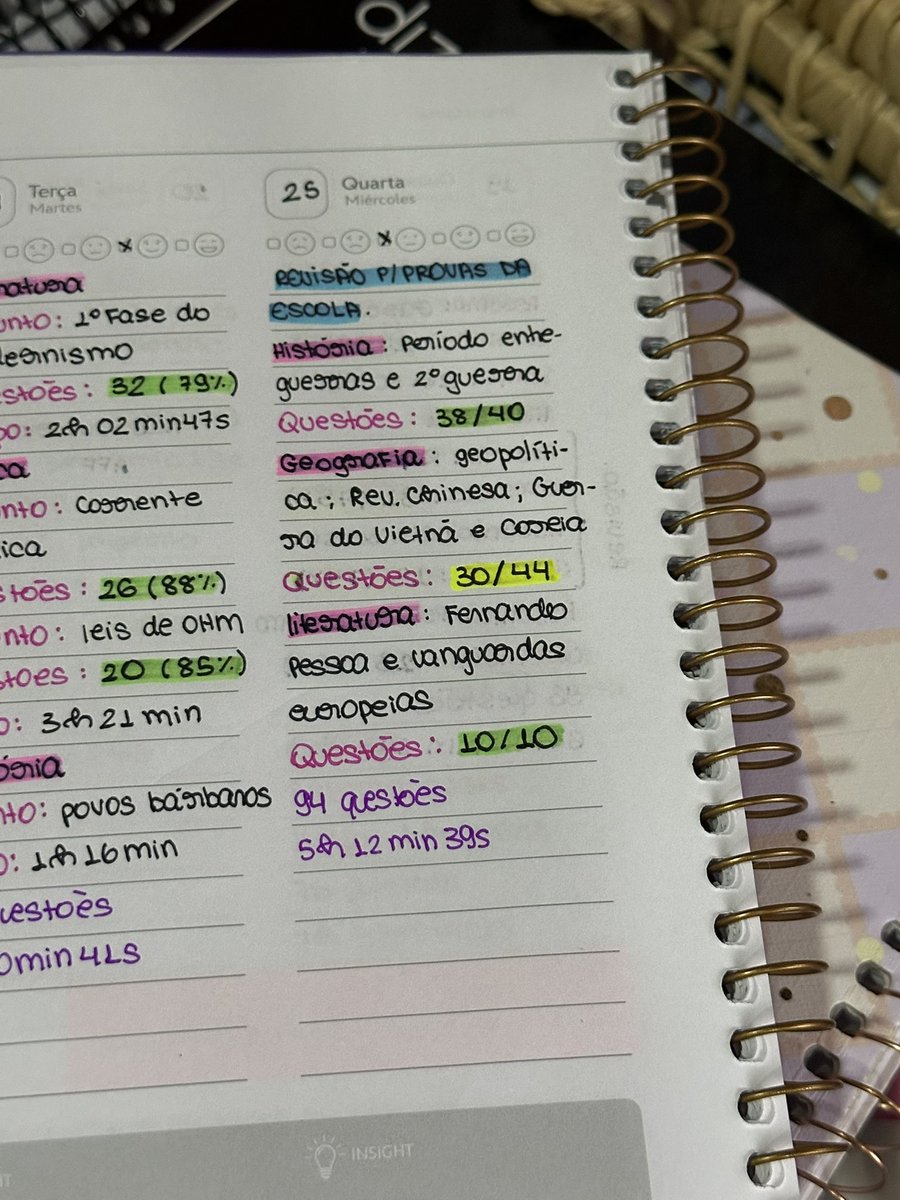 Terça
Martes
natura
unto: 1º Fase do
dernismo
stões: 32 (79%)
po: 2h 02min47s
ca
nto: corrente
ica
stões: 26 (88%)
nto: leis de OHM
stoes: 20 (85%)
o: 3h 21 min
ória
nto: povos bárbaros
o: 1h 16min
uestoès
0min 41s
25
Quarta
Miércoles
REVISÃO P/PROVAS DA
ESCOLA.
História: Período entre-
guerras e 2º guerra
Questões: 38/40
Geografia: geopolíti-
ca; Rev. Chinesa; Guer-
ra do Vietnã e Coreia
Questões: 30/44
literatura: Fernando
Pessoa e vanguardas
europeias
Questões: 10/10
94 questões
5h 12 min 39s
INSIGHT